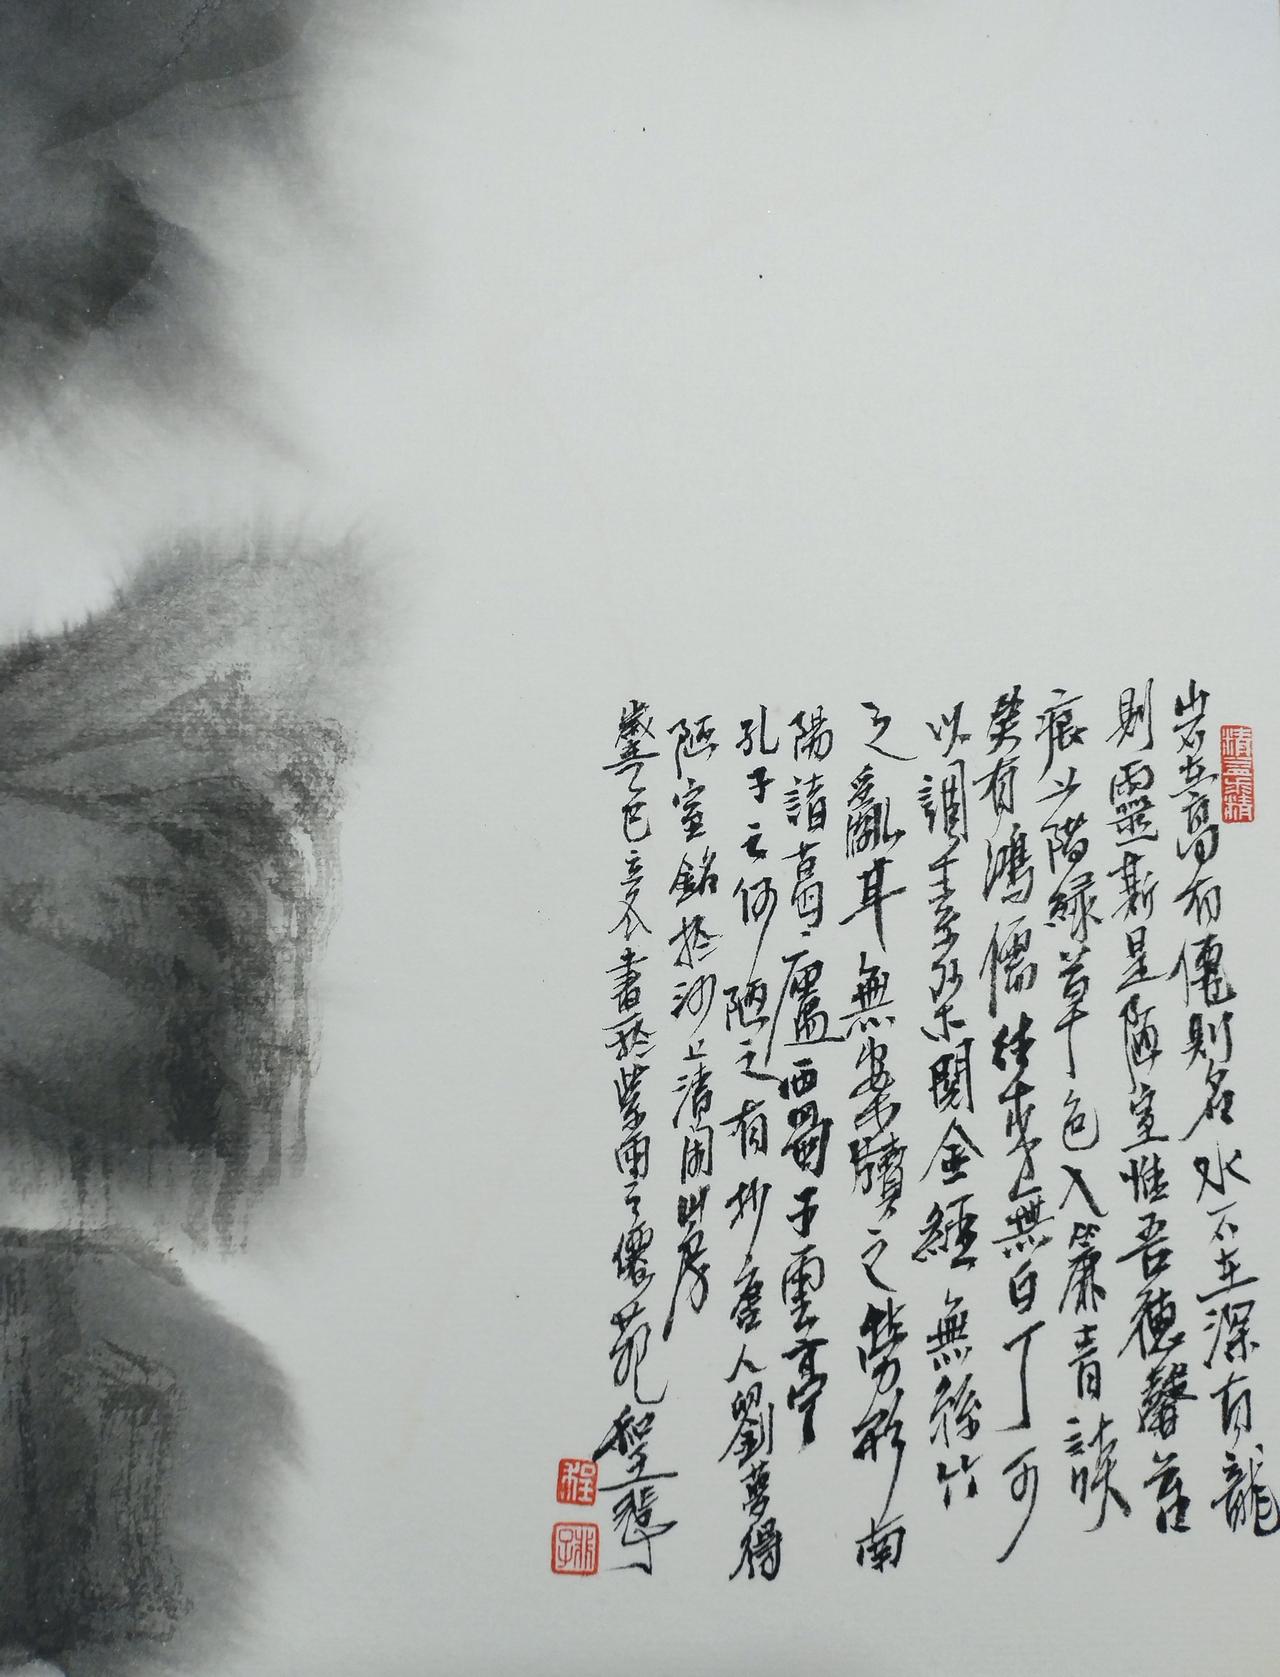 山不在高有僊則名水不在深有龍
則靈斯是陋室惟吾德馨苔
痕上階綠草色入簾青談
笑有鴻儒往來無白丁可
以調素琴閱金經無絲竹
之亂耳無案牘之勞形南
陽諸葛廬西蜀子雲亭
孔子云何陋之有抄唐人劉夢得
陋室銘於沙上清閑山房
歲乙巳立冬書於紫
程